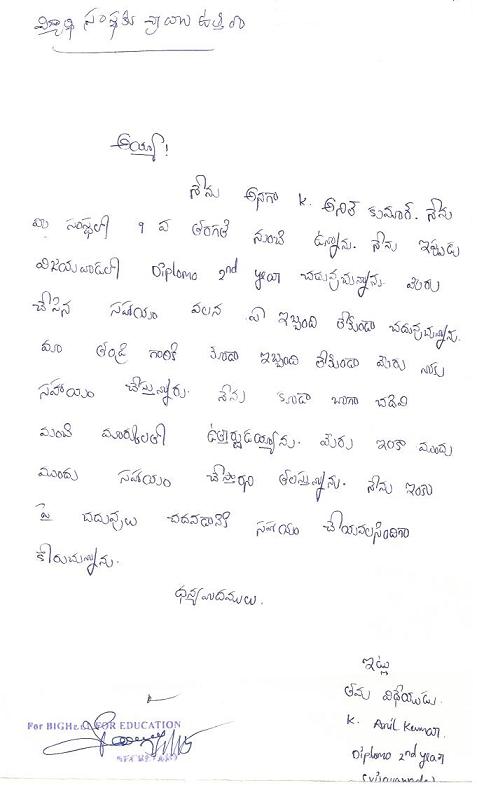 విద్యార్థి సంస్థకు వ్రాయు ఉత్తరం
అయ్యా!
నేను అనగా K. అనిల్ కుమార్. నేను
మీ సంస్థలో 9 వ తరగతి నుంచి ఉన్నాను. నేను ఇప్పుడు
విజయవాడలో Diploma 2nd year చదువుచున్నాను. మీరు
చేసిన సహాయం వలన ఏ ఇబ్బంది లేకుండా చదువుచున్నాను.
మా తండ్రి గారికి కూడా ఇబ్బంది లేకుండా మీరు నాకు
సహాయం చేస్తున్నారు. నేను కూడా బాగా చదివి
మంచి మార్కులతో ఉత్తీర్ణుడయ్యాను. మీరు ఇంకా ముందు
ముందు సహాయం చేస్తారని తలస్తున్నాను. నేను ఇంకా
పై చదువులు చదవడానికి సహాయం చేయవలసిందిగా
కోరుచున్నాను.
ధన్యవాదములు.
ఇట్లు
తమ విధేయుడు.
K. Anil Kumar.
Diploma 2nd year
(Vijayawada)
For BIGHELP FOR EDUCATION
SECRETARY